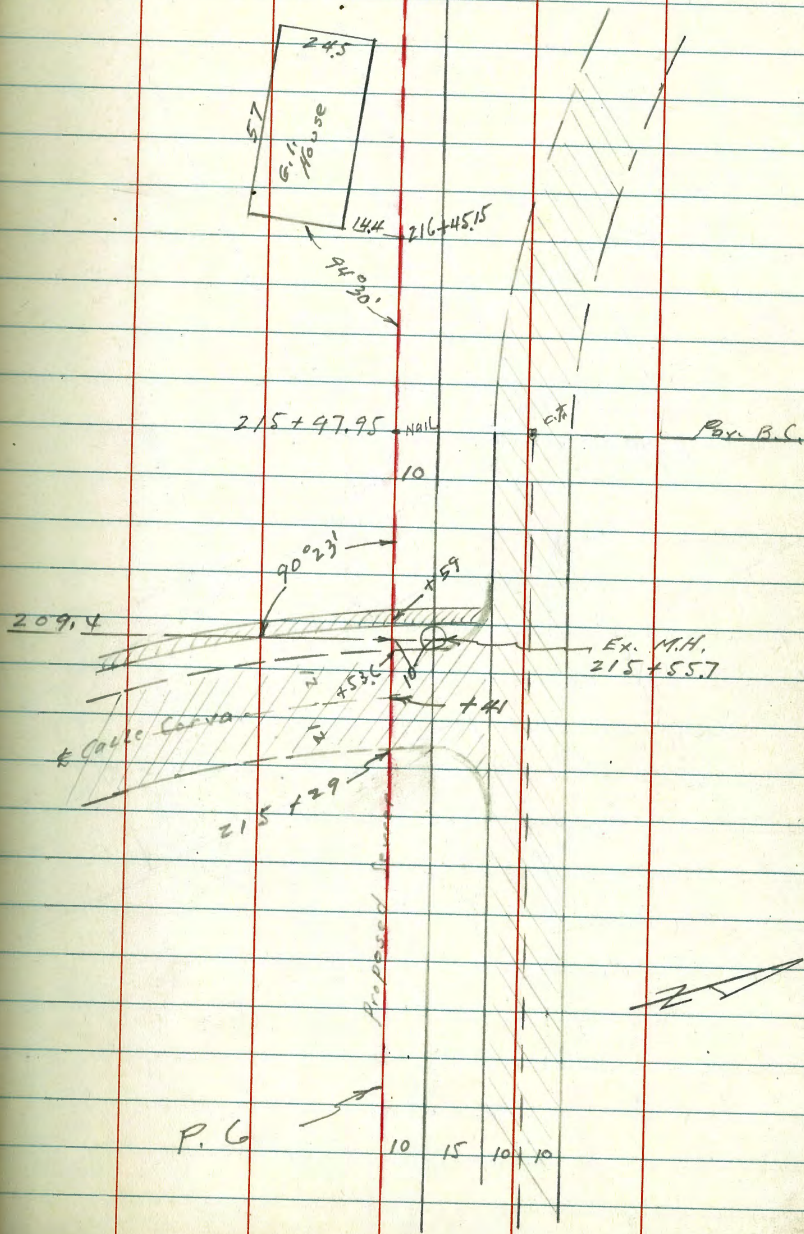 24.5
57
G.I.
House
14.4
216+45.15
94° 30'
215+97.95
NAIL
Pav. B.C.
10
90° 23'
+59
209.4
Ex. M.H.
215+55.7
+53.6
10
12
+41
℄ Calle Corva
12
215+29
Proposed Sewer
P. 6
10 15 10 10